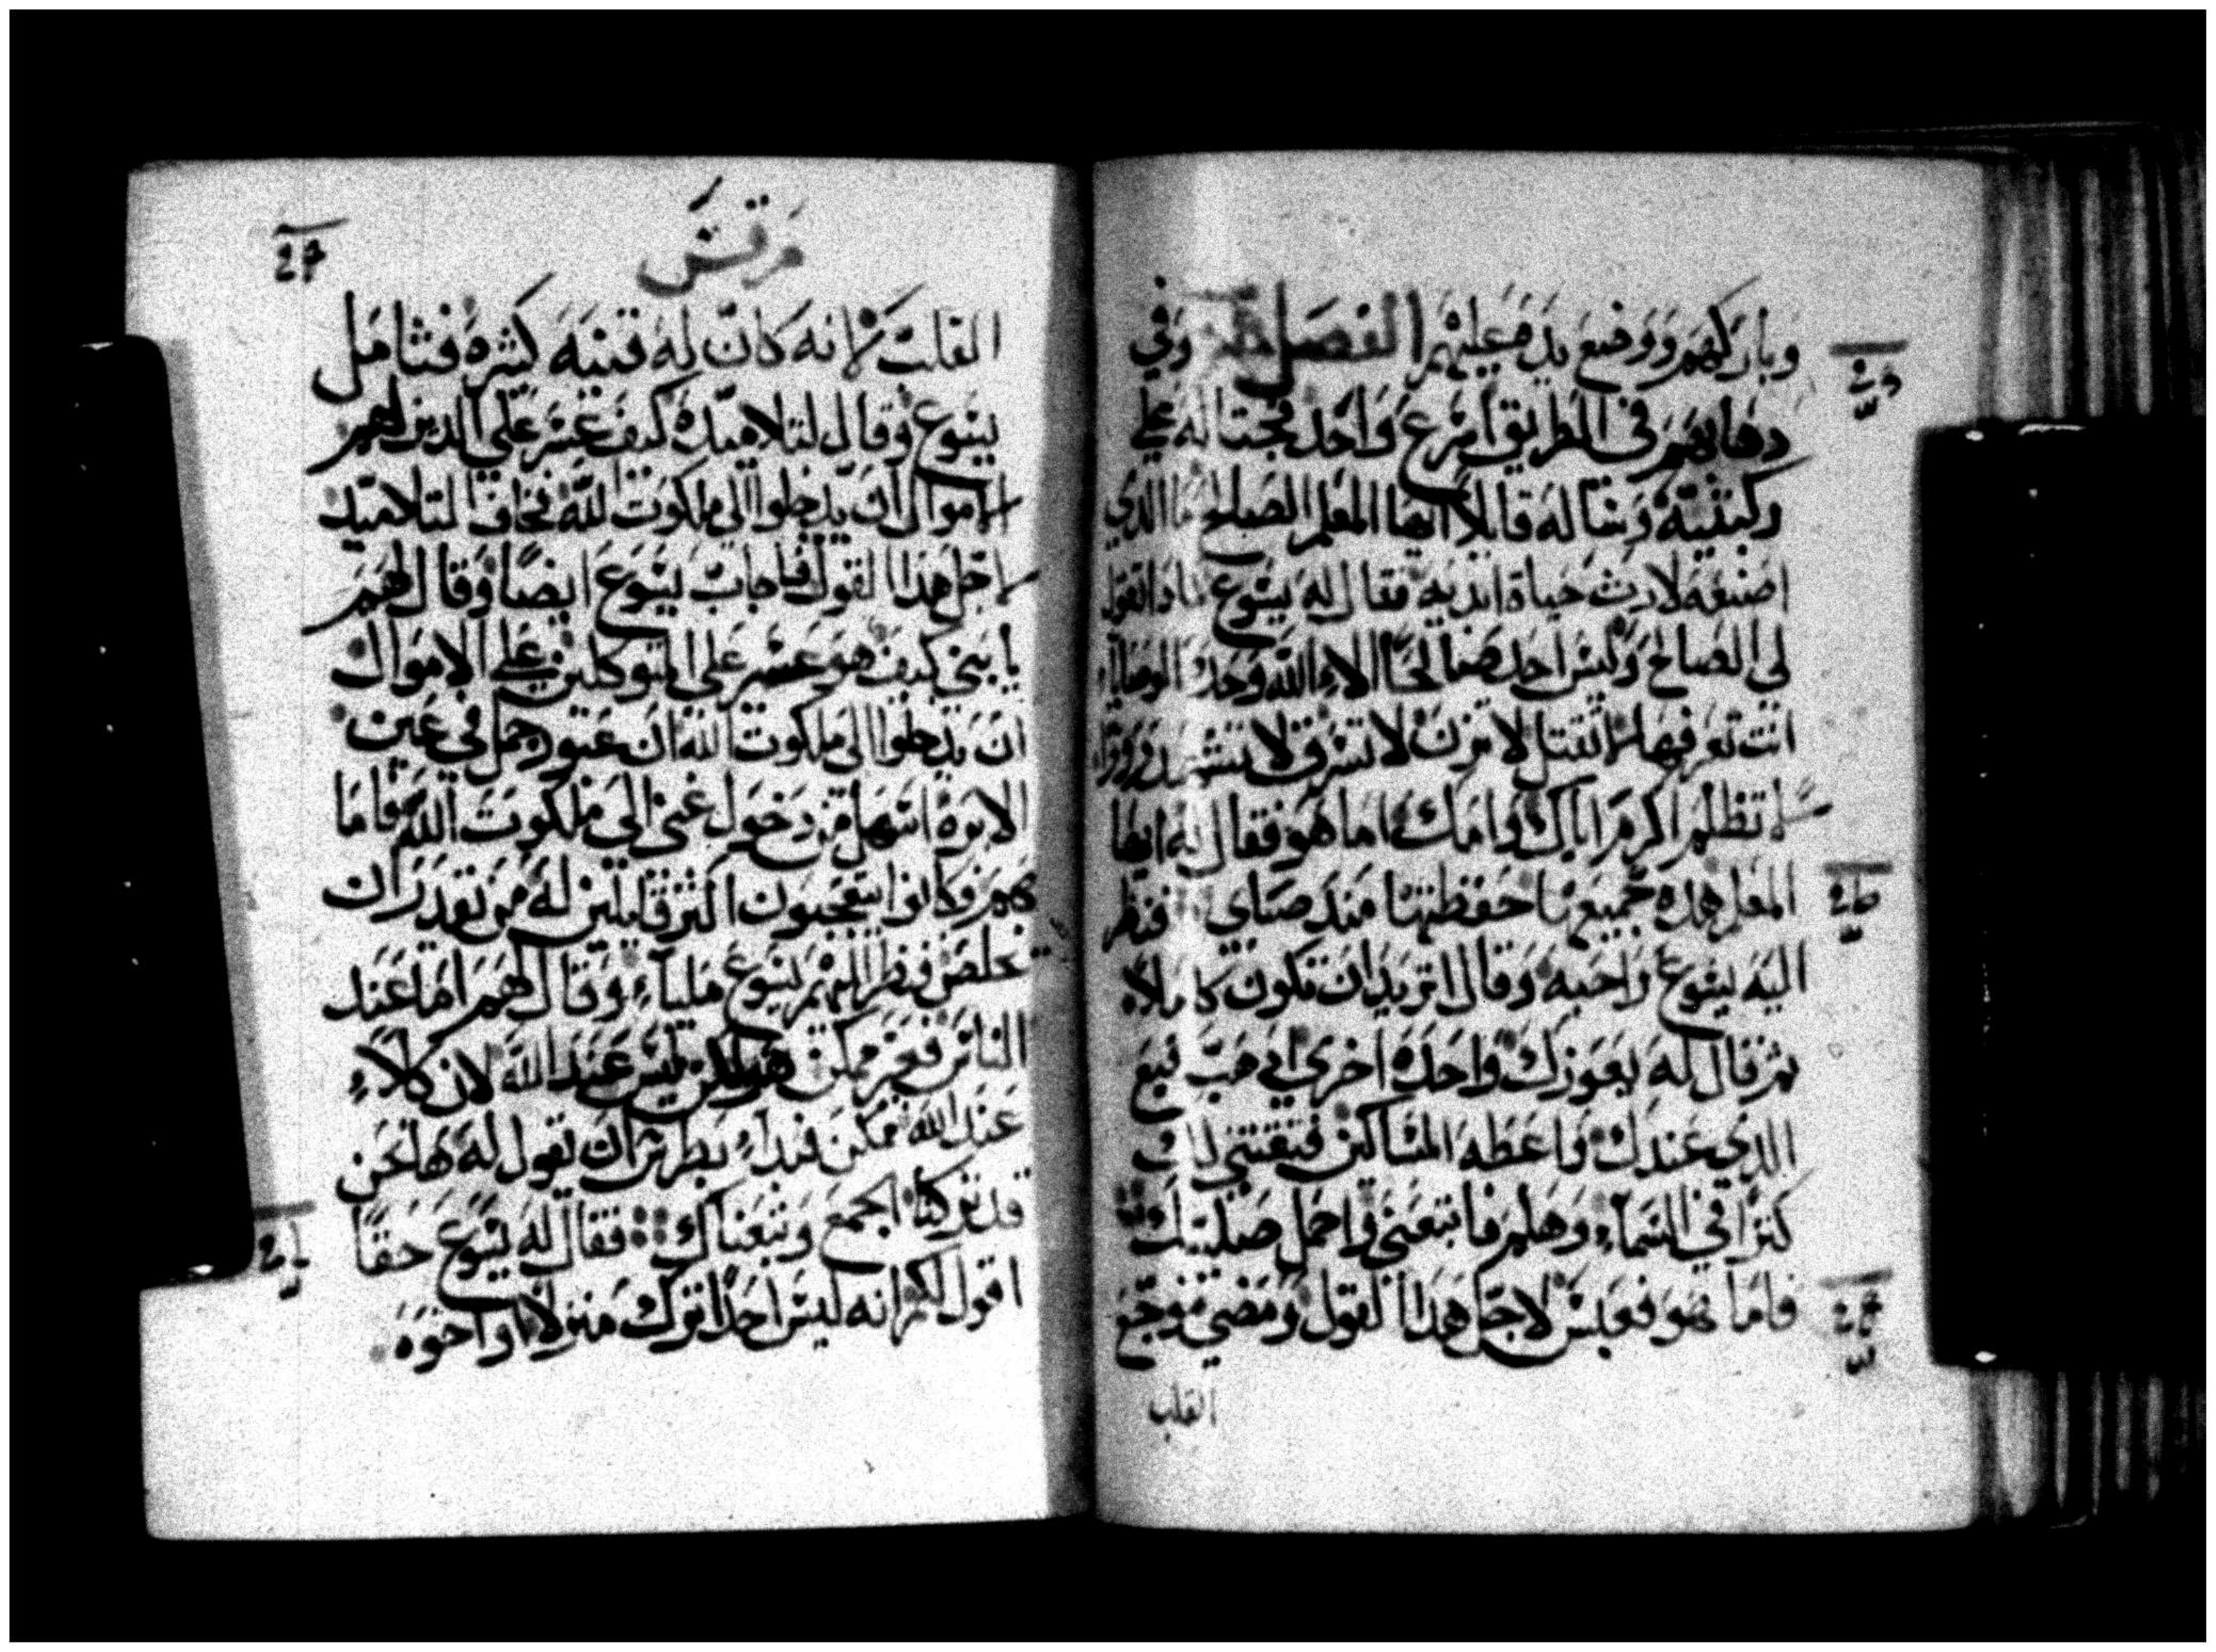 وباركهم ووضع يده عليهم الفصل وفي
دهابهم في الطريق اسرع واحد فجتا له على
ركبتيه وساله قايلا ايها المعلم الصالح ما الدي
اصنعه لارث حياة ابديه فقال له يسوع لمادا تقول
لي الصالح وليس احد صالحا الا الله وحده الوصايا
انت تعرفها لا تقتل لا تزن لا تسرق لا تشهد زورا
لا تظلم اكرم اباك وامك اما هو فقال له ايها
المعلم هده جميعها حفظتها مند صباي فنظر
اليه يسوع واحبه وقال اتريد ان تكون كاملا
ثم قال له يعوزك واحده اخرى ادهب فبع
الدي عندك واعطه المساكين فتقتني لك
كنزا في السماء وهلم فاتبعني واحمل صليبك
فاما هو فعبس لاجل هدا القول ومضى موجع
القلب
مرقس
القلب لانه كان له قنيه كثره فتامل
يسوع وقال لتلاميده كيف عسر على الدين لهم
اموال ان يدخلوا الى ملكوت الله فخاف التلاميد
لاجل هدا القول فاجاب يسوع ايضا وقال لهم
يا بني كيف هو عسر على المتوكلين على الاموال
ان يدخلوا الى ملكوت الله ان عبور جمل في عين
الابره اسهل من دخول غني الى ملكوت الله فاما
هم فكانوا يتعجبون اكثر قايلين له من يقدر ان
يخلص فنظر اليهم يسوع مليا وقال لهم اما عند
الناس فغير ممكن ولكن ليس عند الله لان كلا
عند الله ممكن فبدا بطرس ان يقول له ها نحن
قد تركنا اجمع وتبعناك فقال له يسوع حقا
اقول لكم انه ليس احدا ترك منزلا او اخوه